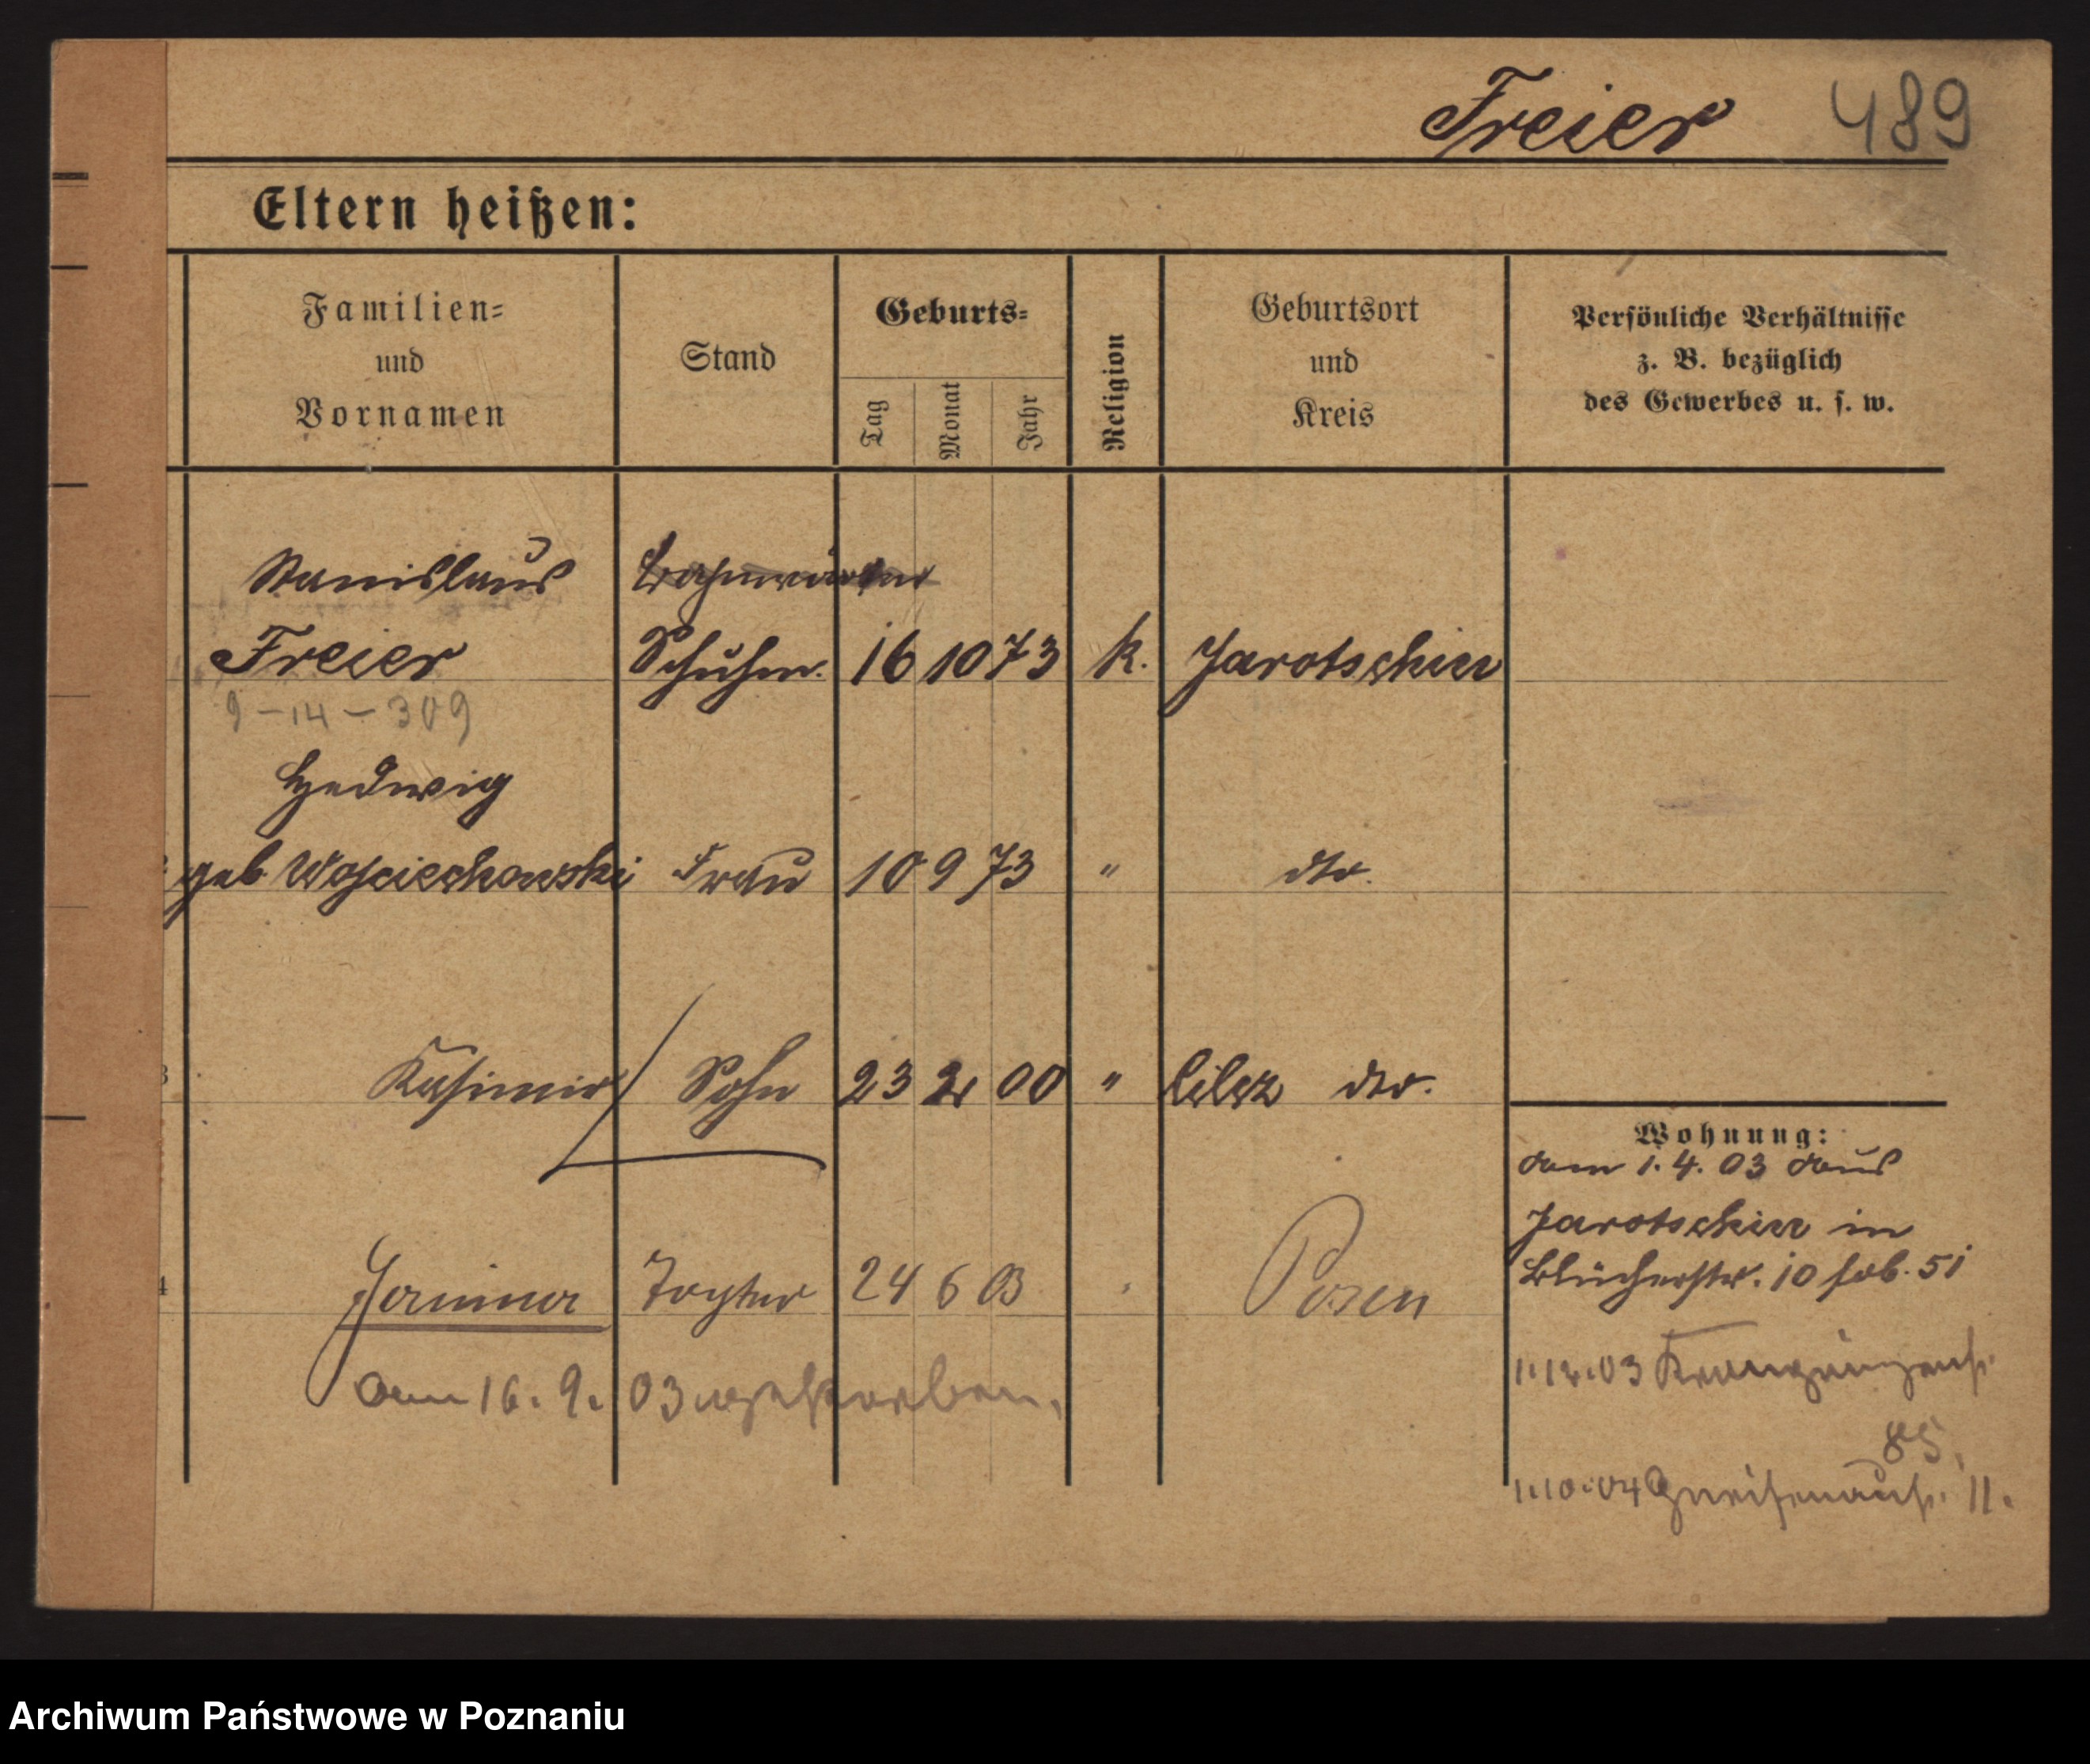 Freier 489
Eltern heißen:
Familien=
und
Vornamen
Stand
Geburts=
Tag
Monat
Jahr
Religion
Geburtsort
und
Kreis
Persönliche Verhältnisse
z. B. bezüglich
des Gewerbes u. s. w.
Stanislaus
Freier Schuhm. 16 10 73 k. Jarotschin
9-14-309
Hedwig
geb Wojciechowski Frau 10 9 73 " dto.
3 Kasimir Sohn 23 2 00 " dto.
Wohnung:
vom 1. 4. 03 aus
Jarotschin in
Blücherstr. 10 bei
4 Janina Tochter 24 6 03 Posen
am 16. 9. 03 verstorben.
1.12.03
85
1.10.04 Gneisenaustr. 11.
Archiwum Państwowe w Poznaniu